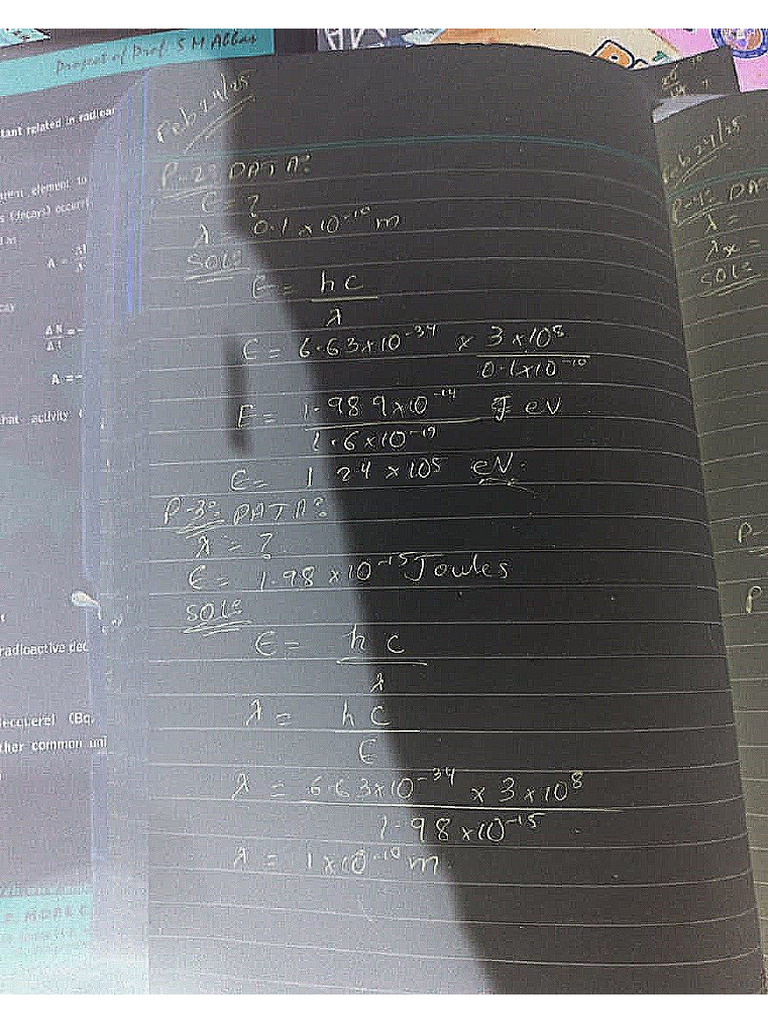 Project of Prof. S M Abbas
tant related in radioa
element to
s (decays) occurr
A =
ΔN
Δt
A = -
that activity
radioactive dec
ecquerel (Bq.
ther common uni
Feb 24/25
P-2: DATA:
E ?
λ 0.1 × 10⁻¹⁰ m
SOL:
E = hc
λ
E = 6.63×10⁻³⁴ × 3×10⁸
0.1×10⁻¹⁰
E = 1.989×10⁻¹⁴ eV
1.6×10⁻¹⁹
E = 1 24 × 10⁵ eV.
P-3: DATA:
λ = ?
E = 1.98 × 10⁻¹⁵ Joules
SOL:
E = hc
λ
λ = hc
E
λ = 6.63×10⁻³⁴ × 3×10⁸
1.98 ×10⁻¹⁵
λ = 1×10⁻¹⁰ m.
Feb 24/25
P-4: DA
λ =
SOL:
P-
P